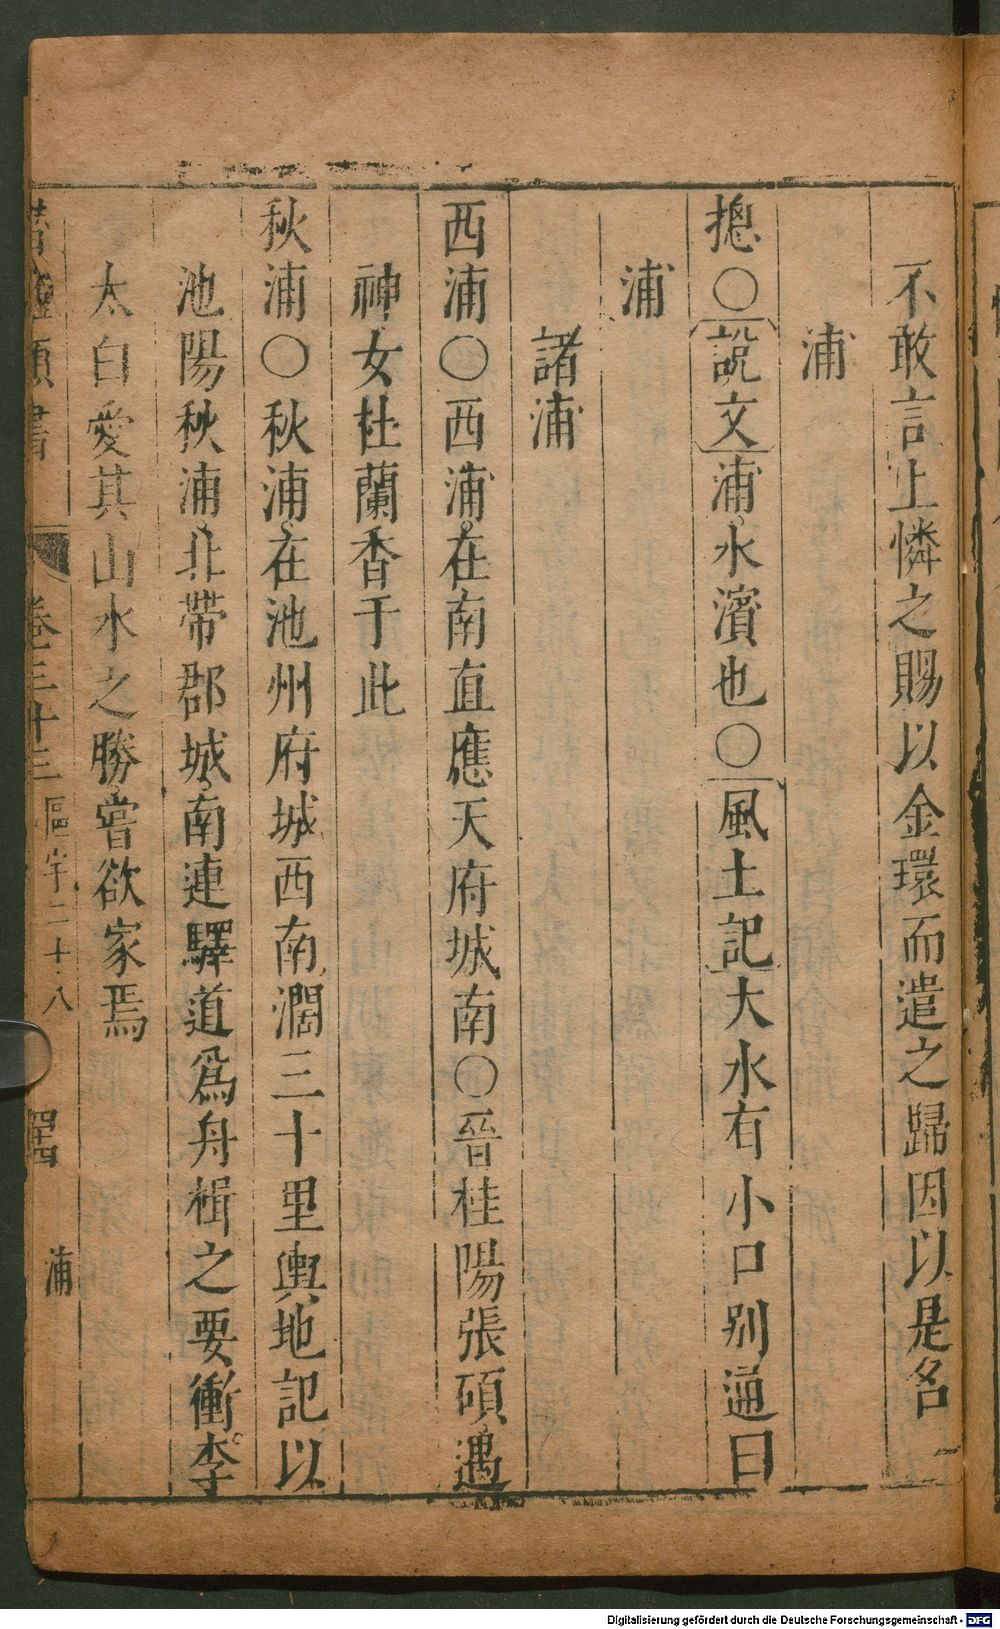 不敢言上憐之賜以金環而遣之歸因以是名
浦
摠○說文浦水濱也○風土記大水有小口别通曰
浦
諸浦
西浦○西浦在南直應天府城南○晉桂陽張碩遇
神女杜蘭香于此
秋浦○秋浦在池州府城西南濶三十里輿地記以
池陽秋浦北帶郡城南連驛道爲舟楫之要衝李
太白愛其山水之勝嘗欲家焉
類書 卷三十三 區字二十八 浦
Digitalisierung gefördert durch die Deutsche Forschungsgemeinschaft - DFG